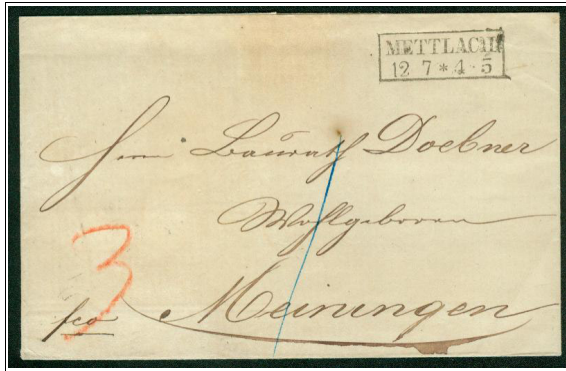 METTLACH
12 7 * 4-5
Herrn Baurath Doebner
Wohlgeboren
3
fco Meiningen